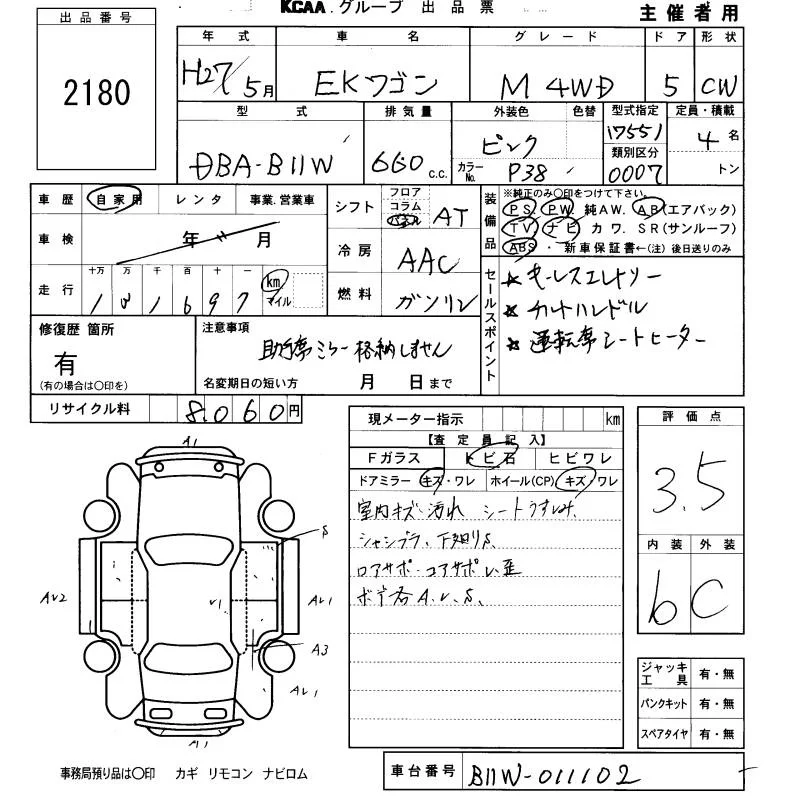 KCAA.グループ 出品票 主催者用
出品番号
2180
年式 車名 グレード ドア 形状
H27/5月 EKワゴン M 4WD 5 CW
型式 排気量 外装色 色替 型式指定 定員・積載
DBA-B11W 660 c.c. ピンク 17551 4名
カラーNo. P38 類別区分 0007 トン
車歴 自家用 レンタ 事業.営業車
車検 年 月
走行 十万 万 千 百 十 一
km マイル
シフト フロア コラム パネル AT
冷房 AAC
燃料 ガソリン
装備品 ※純正のみ○印をつけて下さい。
PS PW 純AW. AB(エアバック)
TV ナビ カワ. SR(サンルーフ)
ABS ・新車保証書←(注) 後日送りのみ
セールスポイント
☆ キーレスエントリー
☆ カットハンドル
☆ 運転席シートヒーター
修復歴 箇所
有
(有の場合は○印を)
注意事項
助手席ミラー格納しません
名変期日の短い方 月 日まで
リサイクル料 8060円
現メーター指示 km
【査定員記入】
Fガラス トビ石 ヒビワレ
ドアミラー キズ・ワレ ホイール(CP) キズ/ワレ
室内キズ 汚れ シートうすしみ
シャシブラ、下廻りS.
ロアサポ・コアサポ 歪
ボデ各 A.U.S.
評価点
3.5
内装 外装
b C
A1
S
AU2
U1
AU1
A3
AU1
A1
ジャッキ工具 有・無
パンクキット 有・無
スペアタイヤ 有・無
事務局預り品は○印 カギ リモコン ナビロム
車台番号 B11W-011102